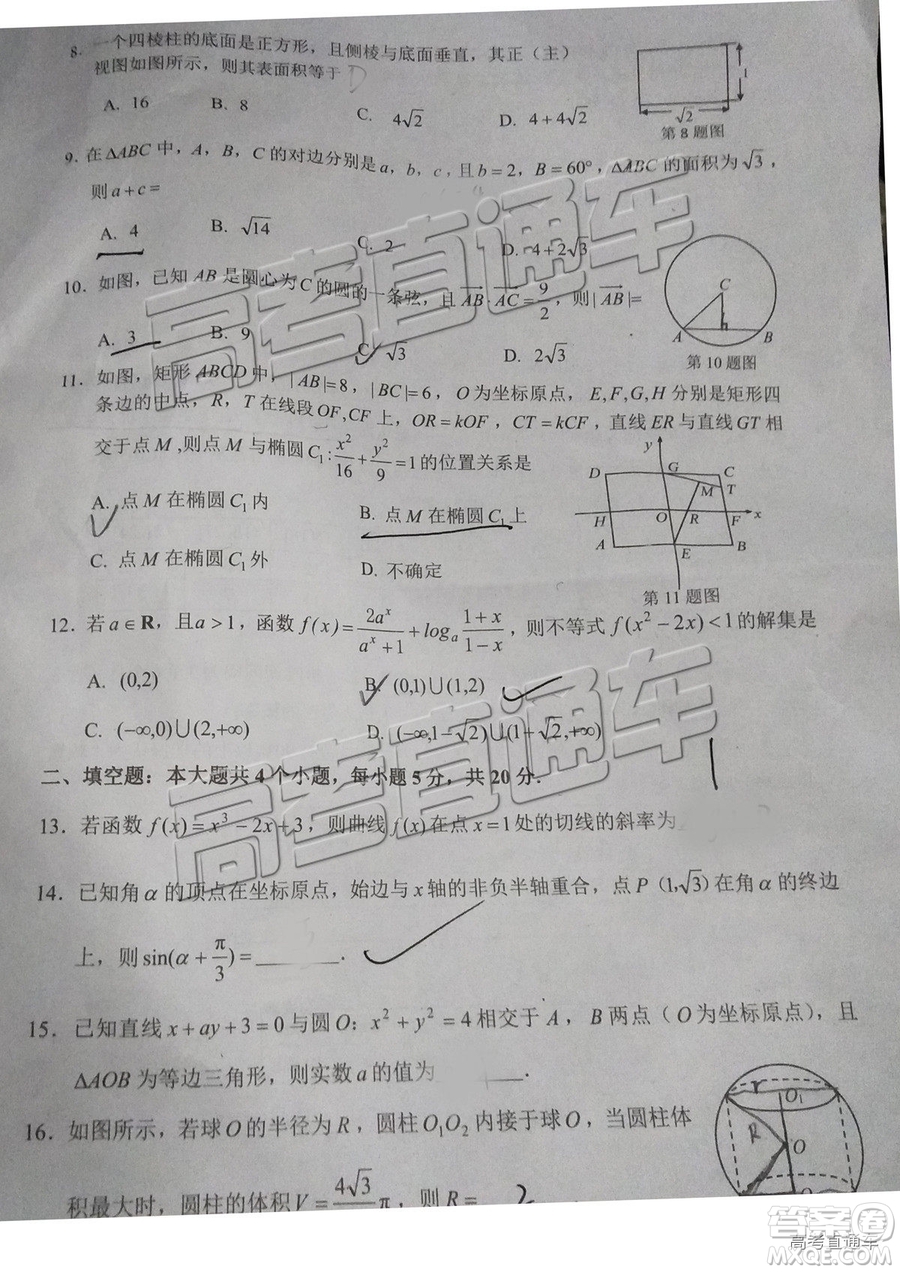 8. 一个四棱柱的底面是正方形，且侧棱与底面垂直，其正（主）
视图如图所示，则其表面积等于 D
A. 16 B. 8 C. 4√2 D. 4+4√2
1
√2
第8题图
9. 在ΔABC中，A，B，C的对边分别是a，b，c，且b=2，B=60°，ΔABC的面积为√3，
则a+c=
A. 4 B. √14 C. 2 D. 4+2√3
10. 如图，已知AB是圆心为C的圆的一条弦，且AB·AC=9/2，则|AB|=
A. 3 B. 9 C. √3 D. 2√3
C
A B
第10题图
11. 如图，矩形ABCD中，|AB|=8，|BC|=6，O为坐标原点，E,F,G,H分别是矩形四
条边的中点，R，T在线段OF,CF上，OR=kOF，CT=kCF，直线ER与直线GT相
交于点M,则点M与椭圆C₁:x²/16+y²/9=1的位置关系是
A. 点M在椭圆C₁内 B. 点M在椭圆C₁上
C. 点M在椭圆C₁外 D. 不确定
y
D G C
M T
H O R F x
A E B
第11题图
12. 若a∈R，且a>1，函数f(x)=2aˣ/(aˣ+1)+logₐ(1+x)/(1-x)，则不等式f(x²-2x)<1的解集是
A. (0,2) B. (0,1)∪(1,2)
C. (-∞,0)∪(2,+∞) D. (-∞,1-√2)∪(1+√2,+∞)
二、填空题：本大题共4个小题，每小题5分，共20分.
13. 若函数f(x)=x³-2x+3，则曲线f(x)在点x=1处的切线的斜率为
14. 已知角α的顶点在坐标原点，始边与x轴的非负半轴重合，点P（1,√3）在角α的终边
上，则sin(α+π/3)=______.
15. 已知直线x+ay+3=0与圆O：x²+y²=4相交于A，B两点（O为坐标原点），且
ΔAOB为等边三角形，则实数a的值为____.
16. 如图所示，若球O的半径为R，圆柱O₁O₂内接于球O，当圆柱体
积最大时，圆柱的体积V=4√3/ π，则R= 2
r O₁
R O
高考直通车
高考直通车
答案卷
高考直通车
MXQE.COM